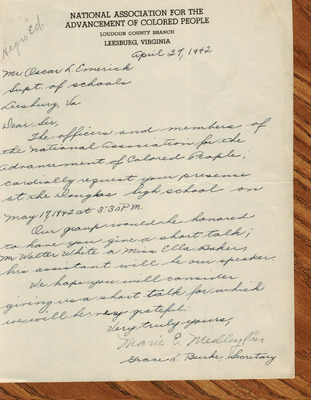 Negro Ed.
NATIONAL ASSOCIATION FOR THE
ADVANCEMENT OF COLORED PEOPLE
LOUDOUN COUNTY BRANCH
LEESBURG, VIRGINIA
April 27, 1942
Mr Oscar L Emerick
Supt. of schools
Leesburg, Va
Dear Sir,
The officers and members of
the National Association for the
Advancement of Colored People;
cordially request your presence
at the Douglas high school on
May 17, 1942 at 3:30 P.M.
Our group would be honored
to have you give a short talk;
Mr Walter White a Miss Ella Baker,
his assistant will be our speaker.
We hope you will consider
giving us a short talk for which
we will be very grateful
Very truly yours,
Marie E. Medley, Pres.
Grace L Burke, Secretary